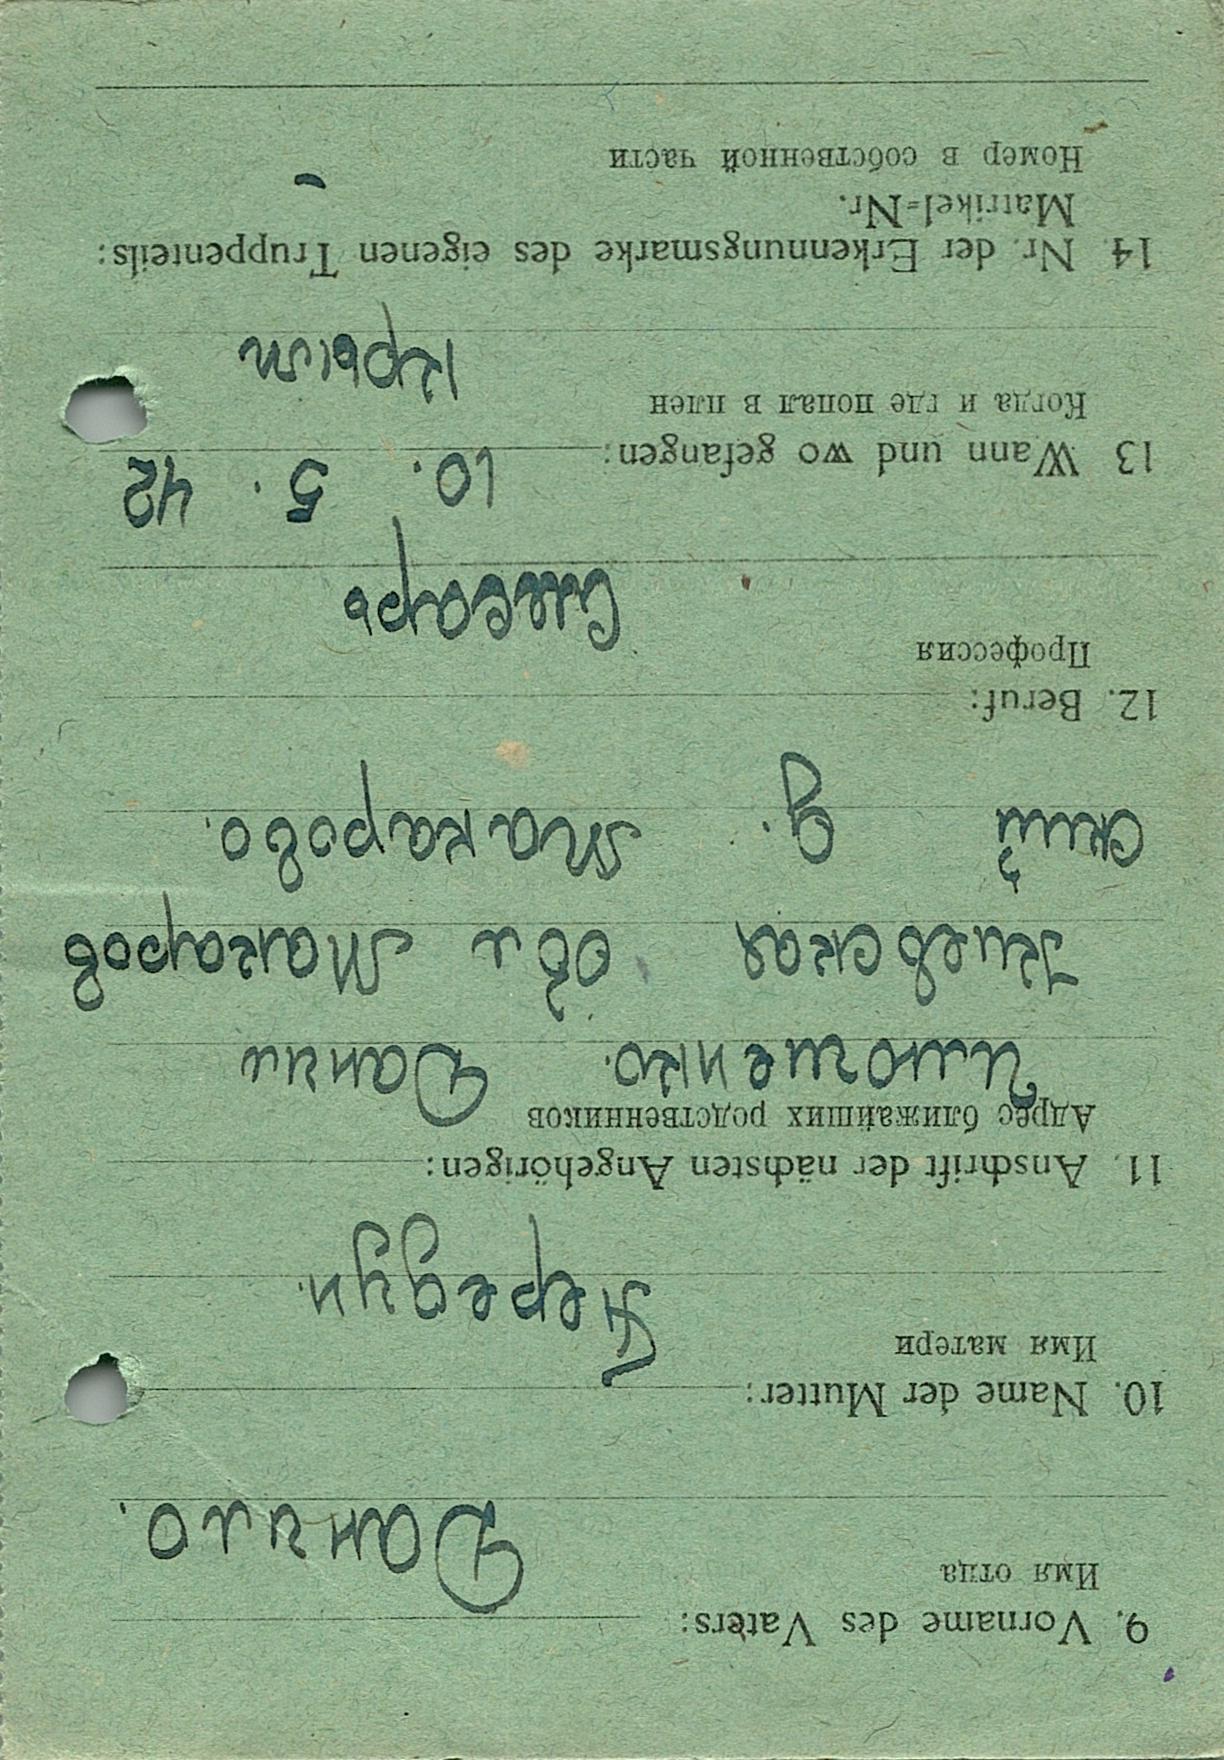 9. Vorname des Vaters:
Имя отца
Данило.
10. Name der Mutter:
Имя матери
Передун.
11. Anschrift der nächsten Angehörigen:
Адрес ближайших родственников
Дании
Киевская обл Макаров
ский д. Макарово.
12. Beruf:
Профессия
Слесарь
13 Wann und wo gefangen: 10. 5. 42
Когда и где попал в плен
Крым
14. Nr. der Erkennungsmarke des eigenen Truppenteils:
Matrikel=Nr.
Номер в собственной части